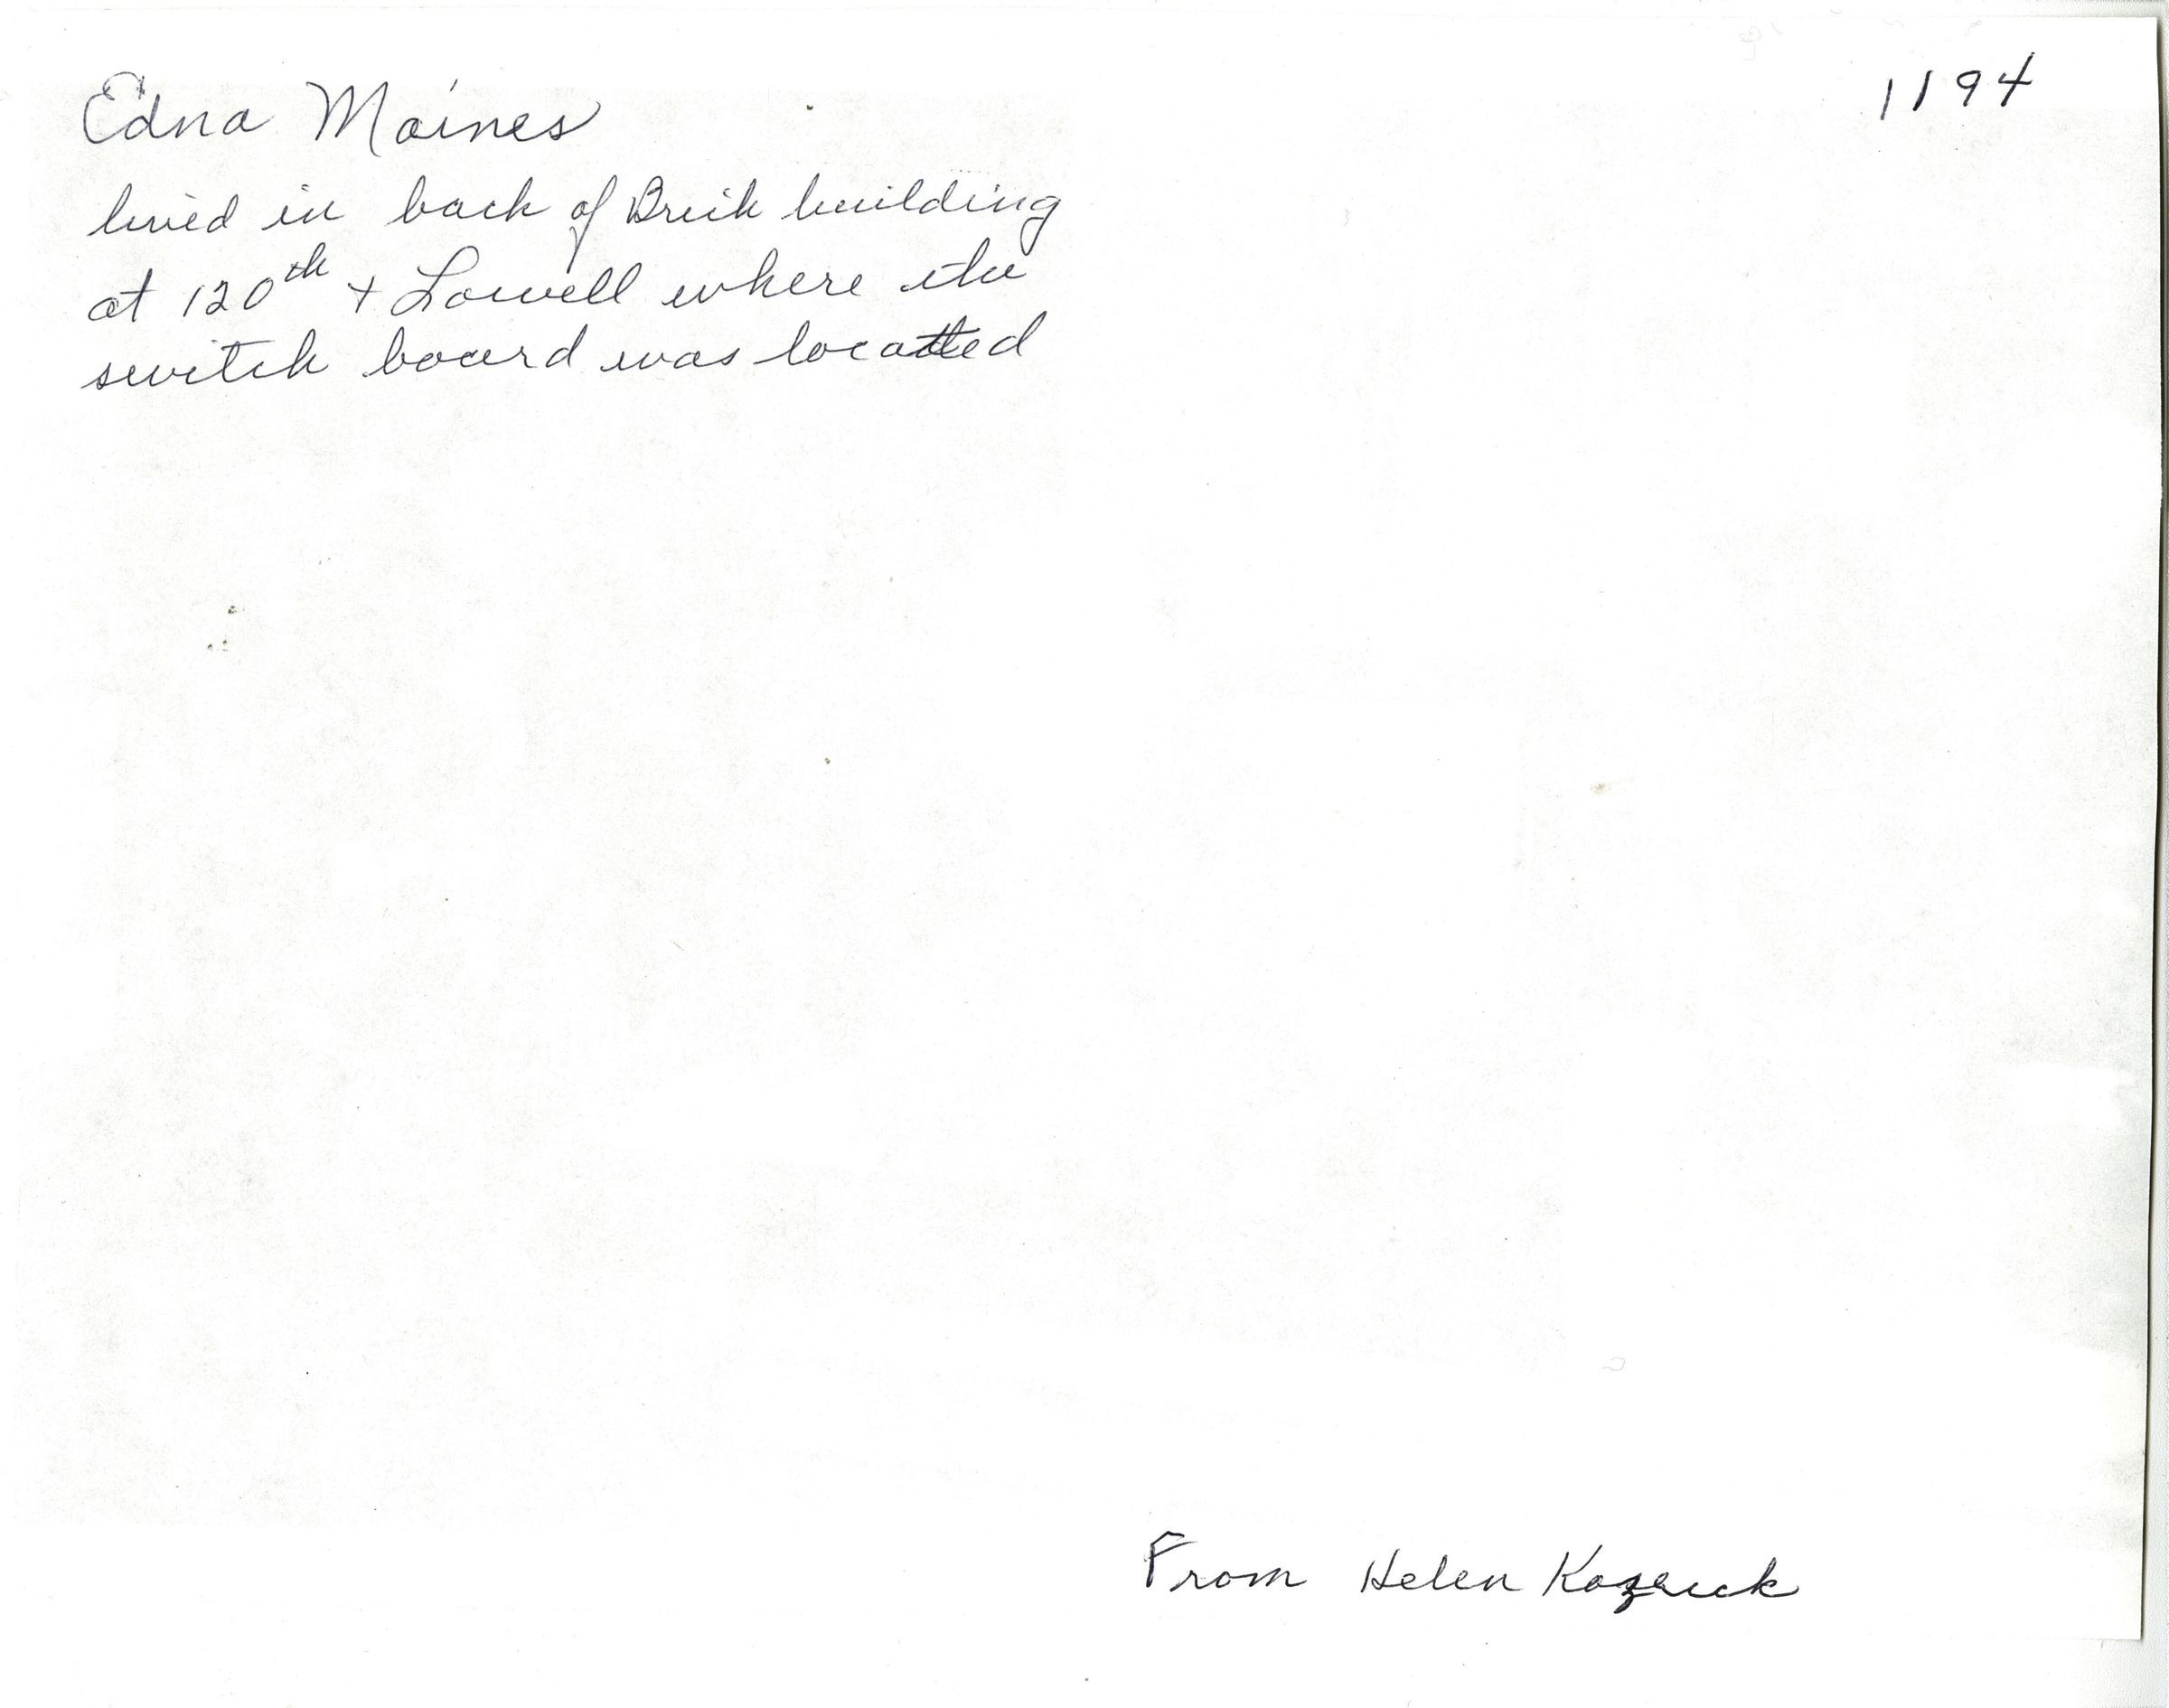 Edna Maines
1194
lived in back of Brick building
at 120th + Lowell where the
switch board was located
From Helen